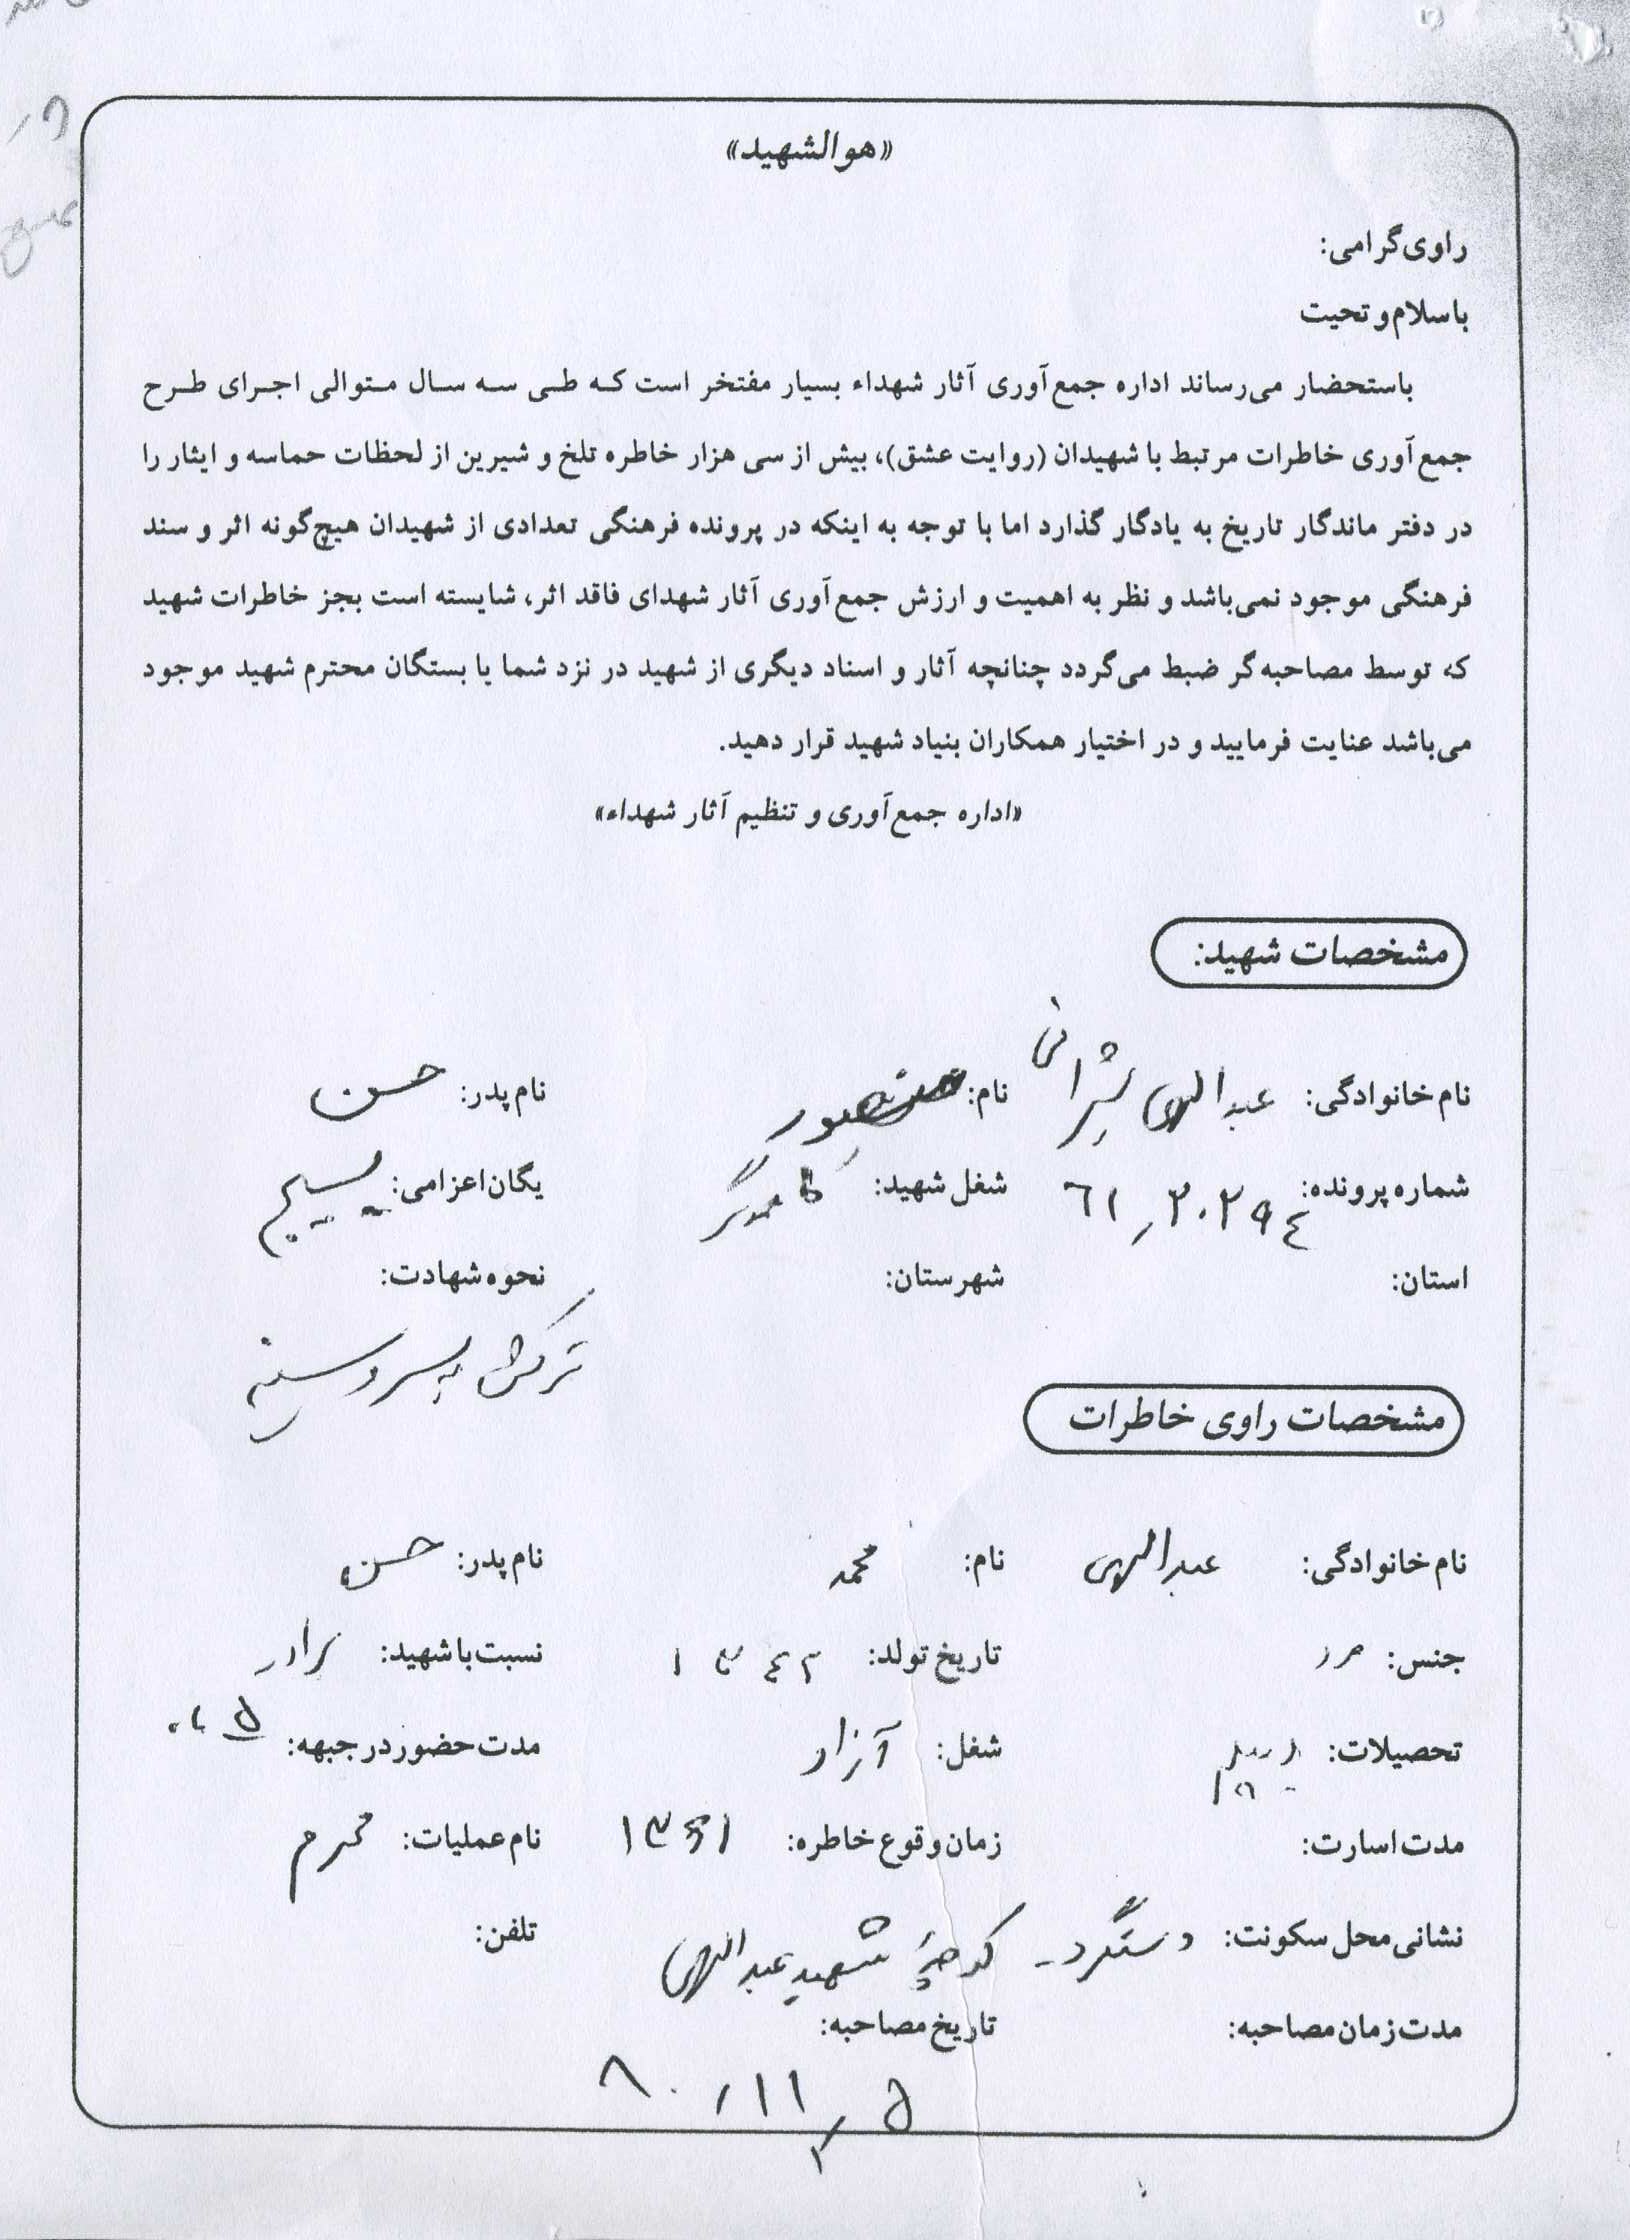 «هوالشهید»
راوی گرامی:
با سلام و تحیت
باستحضار می‌رساند اداره جمع‌آوری آثار شهداء بسیار مفتخر است که طی سه سال متوالی اجرای طرح
جمع‌آوری خاطرات مرتبط با شهیدان (روایت عشق)، بیش از سی هزار خاطره تلخ و شیرین از لحظات حماسه و ایثار را
در دفتر ماندگار تاریخ به یادگار گذارد اما با توجه به اینکه در پرونده فرهنگی تعدادی از شهیدان هیچ‌گونه اثر و سند
فرهنگی موجود نمی‌باشد و نظر به اهمیت و ارزش جمع‌آوری آثار شهدای فاقد اثر، شایسته است بجز خاطرات شهید
که توسط مصاحبه‌گر ضبط می‌گردد چنانچه آثار و اسناد دیگری از شهید در نزد شما یا بستگان محترم شهید موجود
می‌باشد عنایت فرمایید و در اختیار همکاران بنیاد شهید قرار دهید.
«اداره جمع‌آوری و تنظیم آثار شهداء»
مشخصات شهید:
نام خانوادگی: عبدالهی نام: منصور نام پدر: حسن
شماره پرونده: ۶۱٫۲۰۲۹۴ شغل شهید: یگان اعزامی: بسیج
استان: شهرستان: نحوه شهادت:
ترکش به سر و سینه
مشخصات راوی خاطرات
نام خانوادگی: عبدالهی نام: محمد نام پدر: حسن
جنس: مرد تاریخ تولد: ۱۳۴۲ نسبت با شهید: برادر
تحصیلات: شغل: آزاد مدت حضور در جبهه: ۵ ماه
مدت اسارت: زمان وقوع خاطره: ۱۳۶۱ نام عملیات: محرم
نشانی محل سکونت: دستگرد - کوچه شهید عبدالهی تلفن:
مدت زمان مصاحبه: تاریخ مصاحبه:
۸۰٫۱۱٫۵